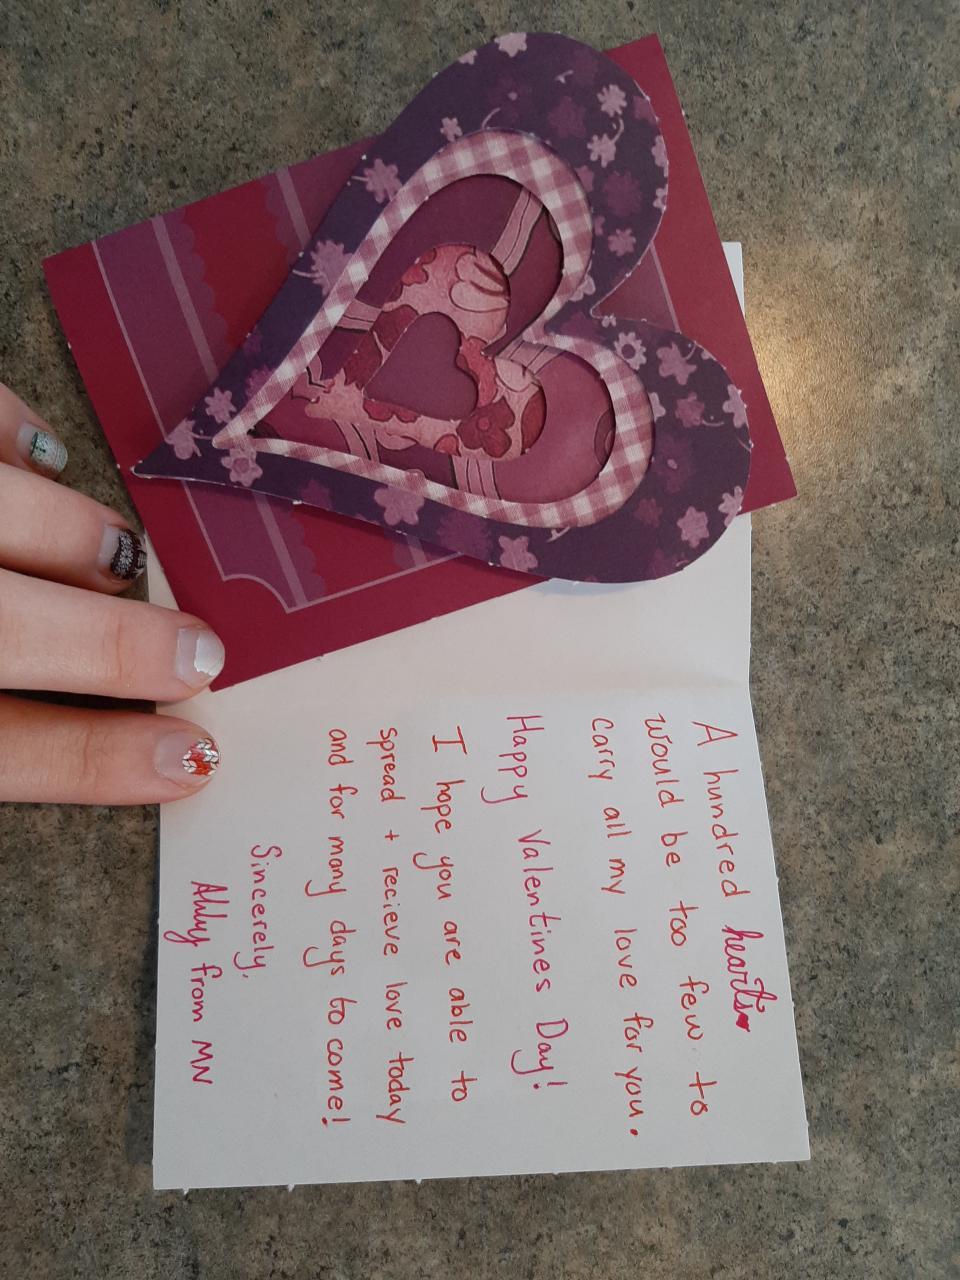 A hundred hearts
would be too few to
carry all my love for you.
Happy Valentines Day!
I hope you are able to
spread + recieve love today
and for many days to come!
Sincerely,
Abby from MN